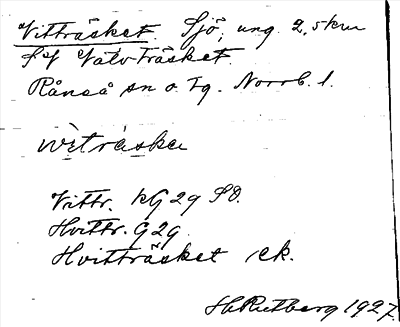 Vitträsket. Sjö, ung. 2,5 km
SV Valvträsket.
Råneå sn o. tg. Norrb. l.
witräska
Vittr. KG 29 SO.
Hvittr. G29.
Hvitträsket ek.
H Rutberg 1927.